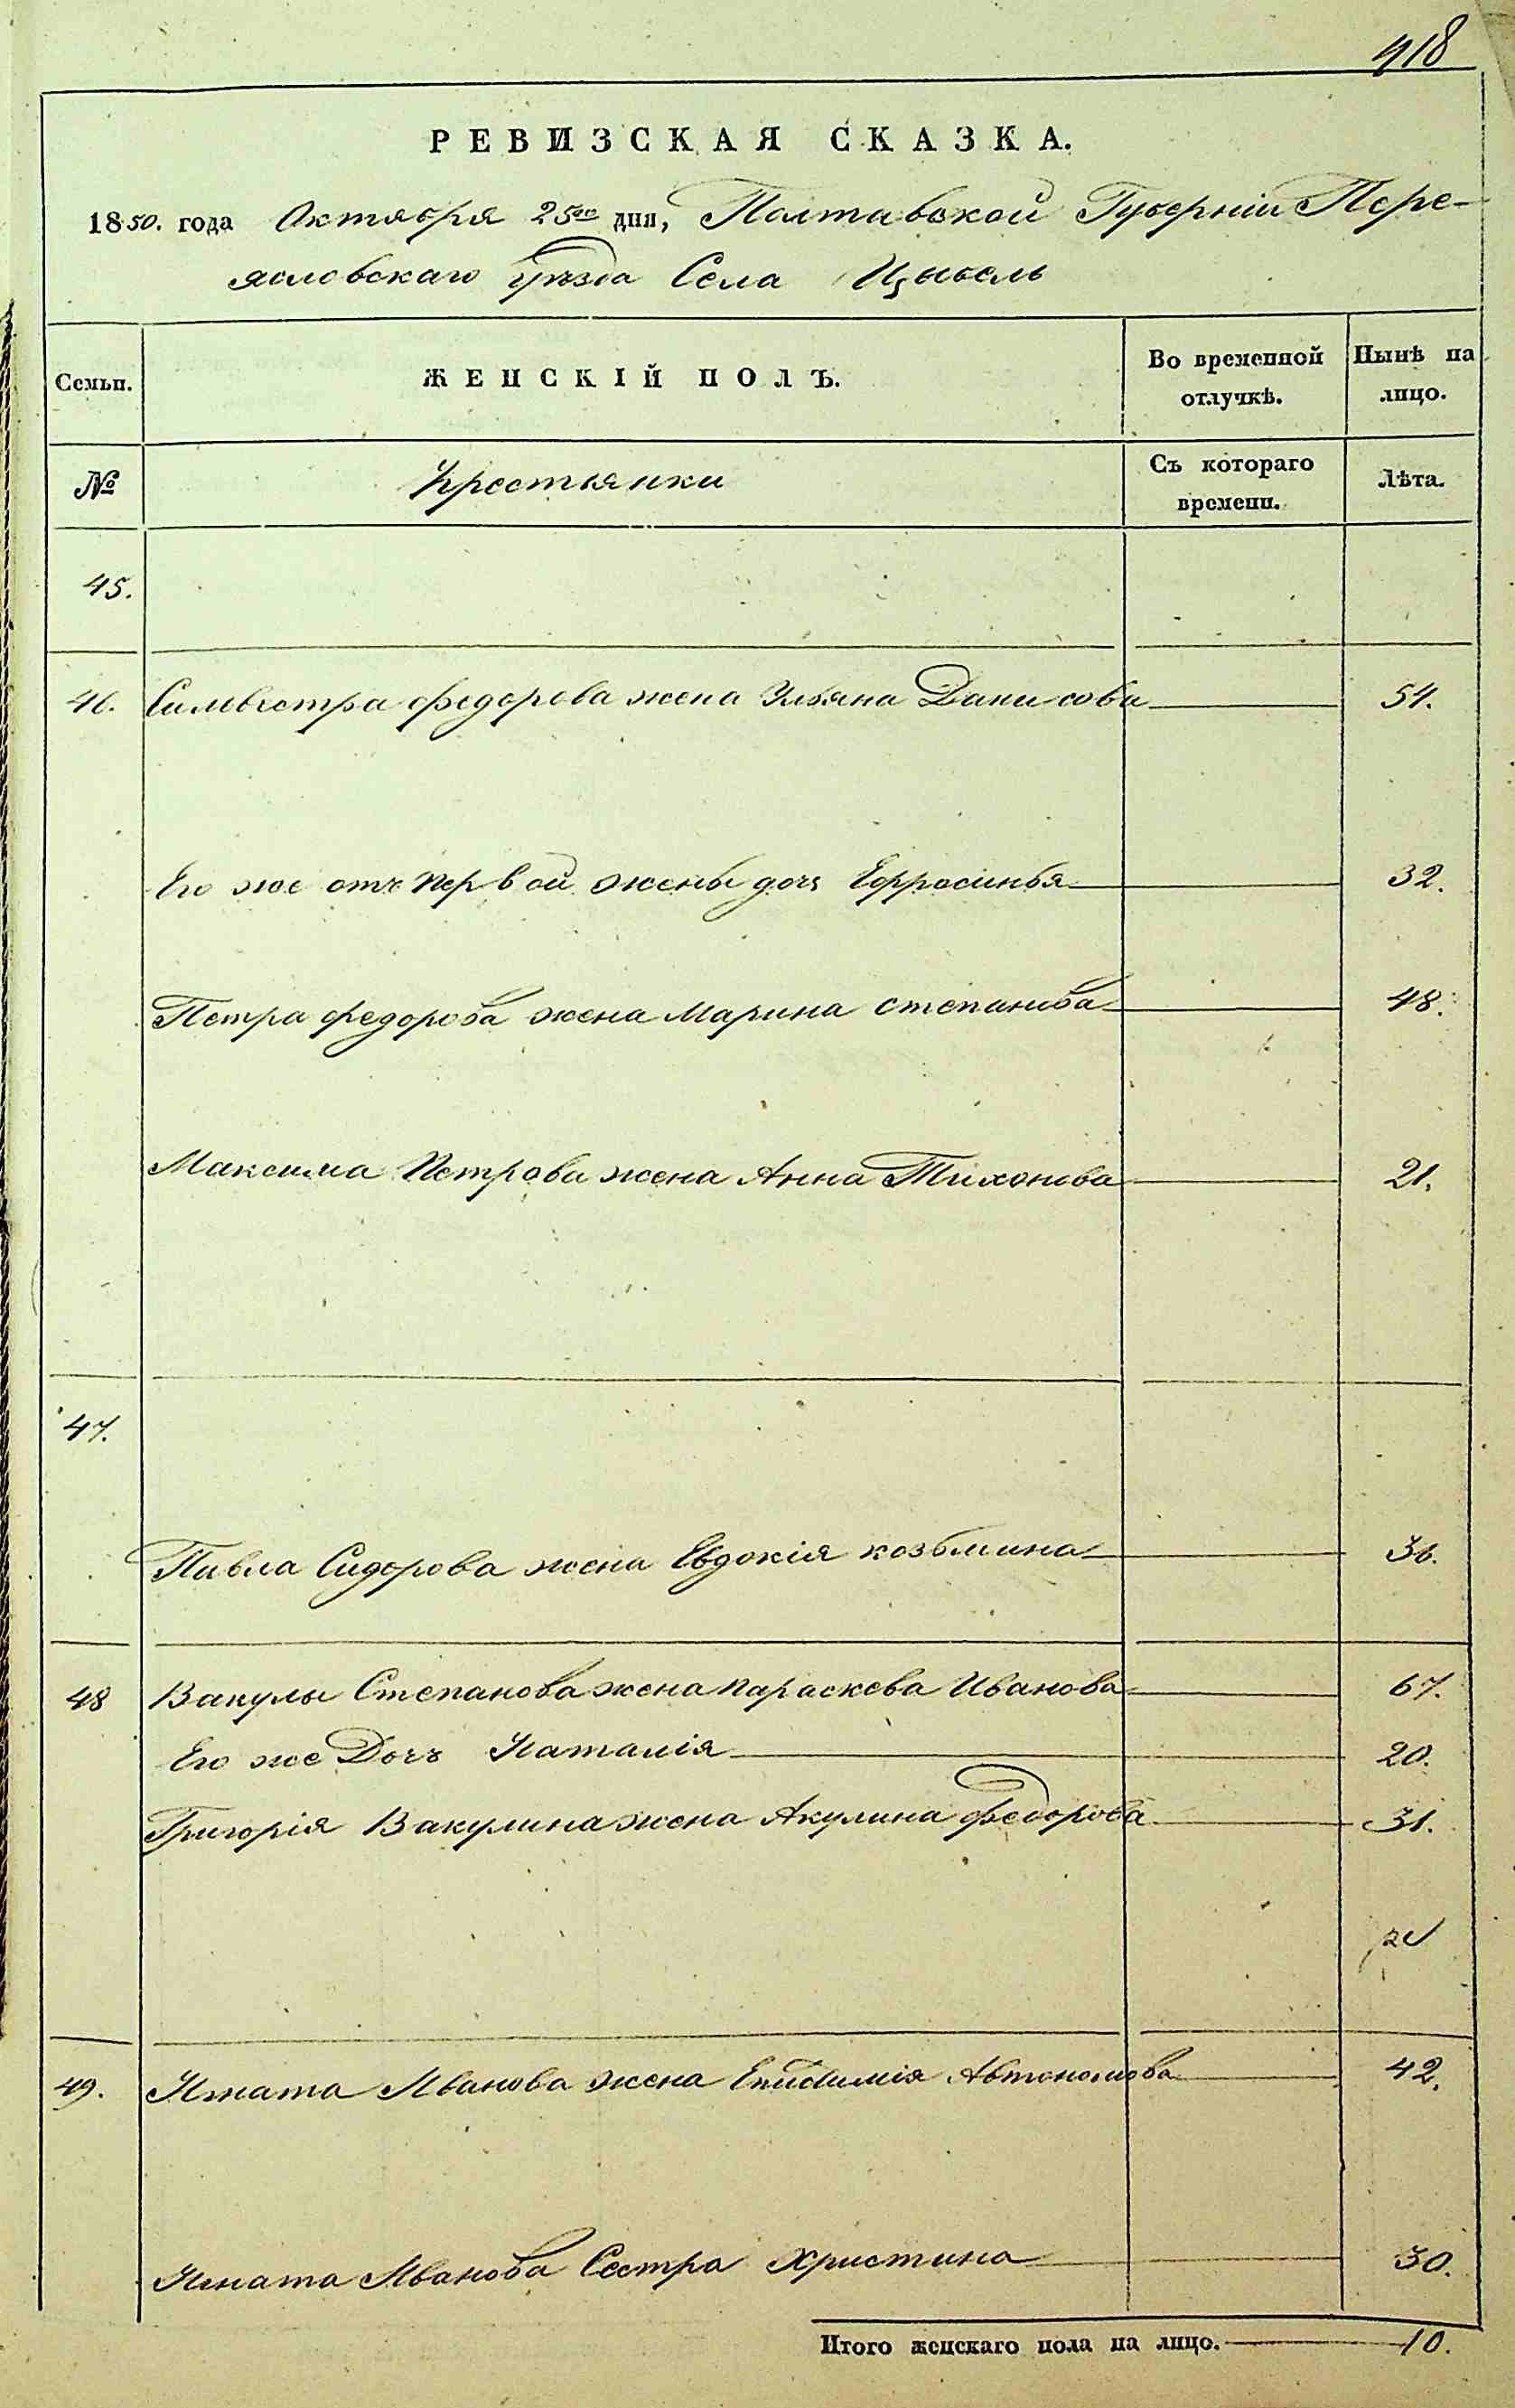 918
РЕВИЗСКАЯ СКАЗКА.
1850. года Октября 25го дня, Полтавской Губерніи Пере-
яславскаго уѣзда Села Цыбель
Семьи. ЖЕНСКІЙ ПОЛЪ. Во временной отлучкѣ. Нынѣ на лицо.
№ Крестьянки Съ котораго времени. Лѣта.
45.
46. Силвестра федорова жена Ульяна Данилова 54.
Его же отъ первой жены дочь Ефросинья 32.
Петра федорова жена Марина степанова 48.
Максима Петрова жена Анна Тихонова 21.
47.
Павла Сидорова жена Евдокія козьмина 36.
48 Вакулы Степанова жена параскева Иванова 67.
Его же Дочь Наталія 20.
Григорія Вакулина жена Акулина федорова 31.
49. Игната Иванова жена Автономова 42.
Игната Иванова Сестра Христина 30.
Итого женскаго пола на лицо. 10.